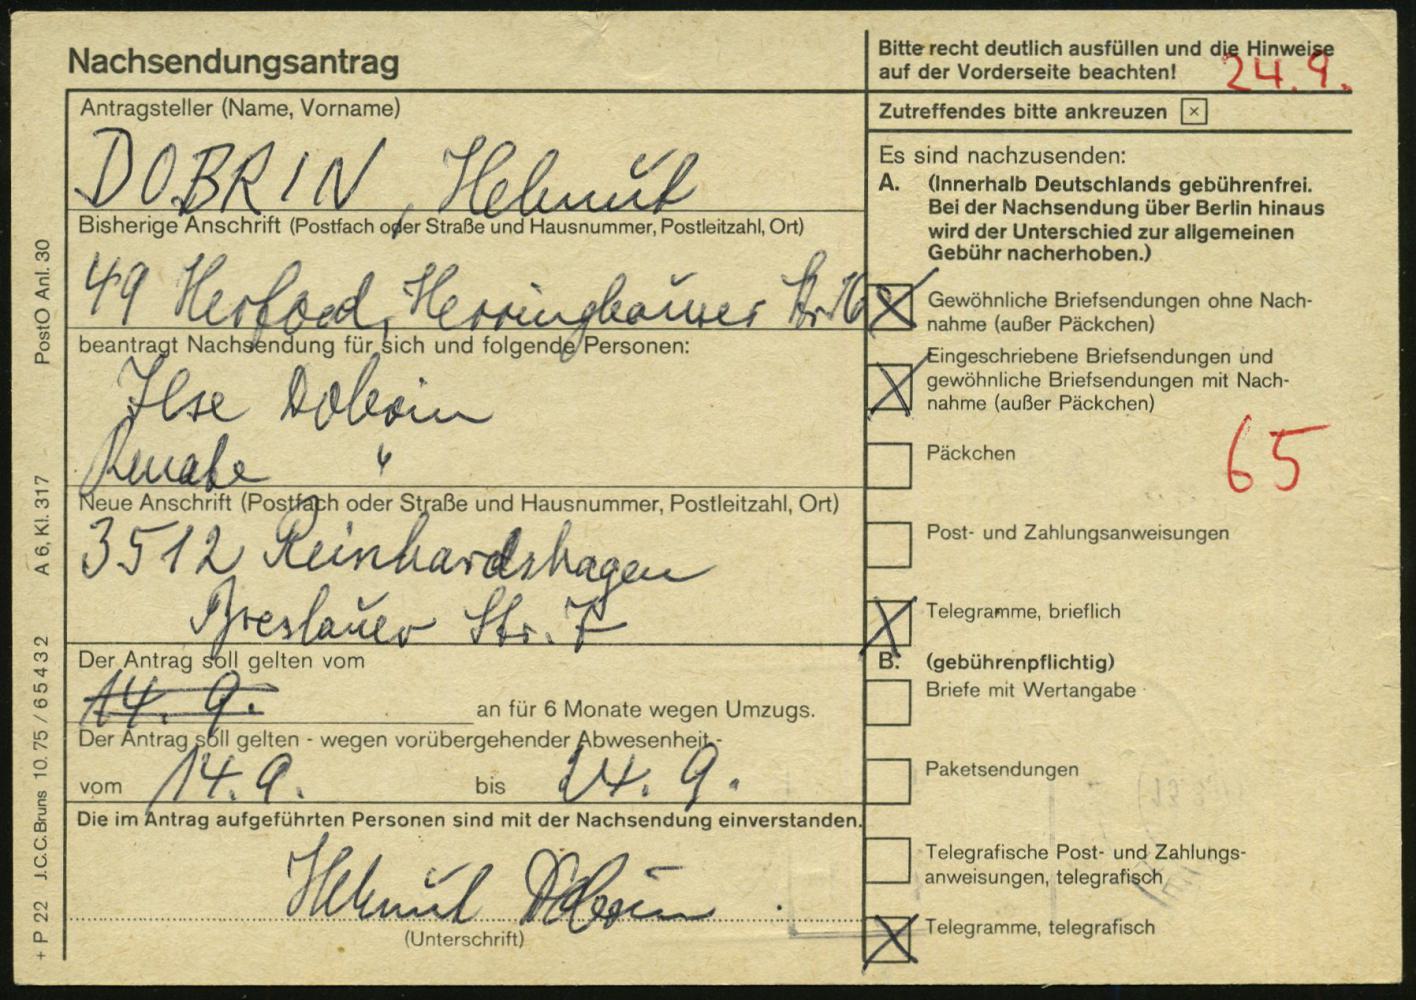 Nachsendungsantrag
Antragsteller (Name, Vorname)
DOBRIN, Helmut
Bisherige Anschrift (Postfach oder Straße und Hausnummer, Postleitzahl, Ort)
49 Herford, Herringhauser Str. 16
beantragt Nachsendung für sich und folgende Personen:
Ilse Dobrin
Renate "
Neue Anschrift (Postfach oder Straße und Hausnummer, Postleitzahl, Ort)
3512 Reinhardshagen
Breslauer Str. 7
Der Antrag soll gelten vom
14. 9. an für 6 Monate wegen Umzugs.
Der Antrag soll gelten - wegen vorübergehender Abwesenheit -
vom 14.9. bis 24. 9.
Die im Antrag aufgeführten Personen sind mit der Nachsendung einverstanden.
Helmut Dobrin
(Unterschrift)
Bitte recht deutlich ausfüllen und die Hinweise
auf der Vorderseite beachten!
24.9.
Zutreffendes bitte ankreuzen
Es sind nachzusenden:
A. (Innerhalb Deutschlands gebührenfrei.
Bei der Nachsendung über Berlin hinaus
wird der Unterschied zur allgemeinen
Gebühr nacherhoben.)
Gewöhnliche Briefsendungen ohne Nach-
nahme (außer Päckchen)
Eingeschriebene Briefsendungen und
gewöhnliche Briefsendungen mit Nach-
nahme (außer Päckchen)
Päckchen
65
Post- und Zahlungsanweisungen
Telegramme, brieflich
B. (gebührenpflichtig)
Briefe mit Wertangabe
Paketsendungen
Telegrafische Post- und Zahlungs-
anweisungen, telegrafisch
Telegramme, telegrafisch
+ P 22 J.C.C.Bruns 10.75 / 6 5 4 3 2 A 6, Kl. 317 PostO Anl. 30